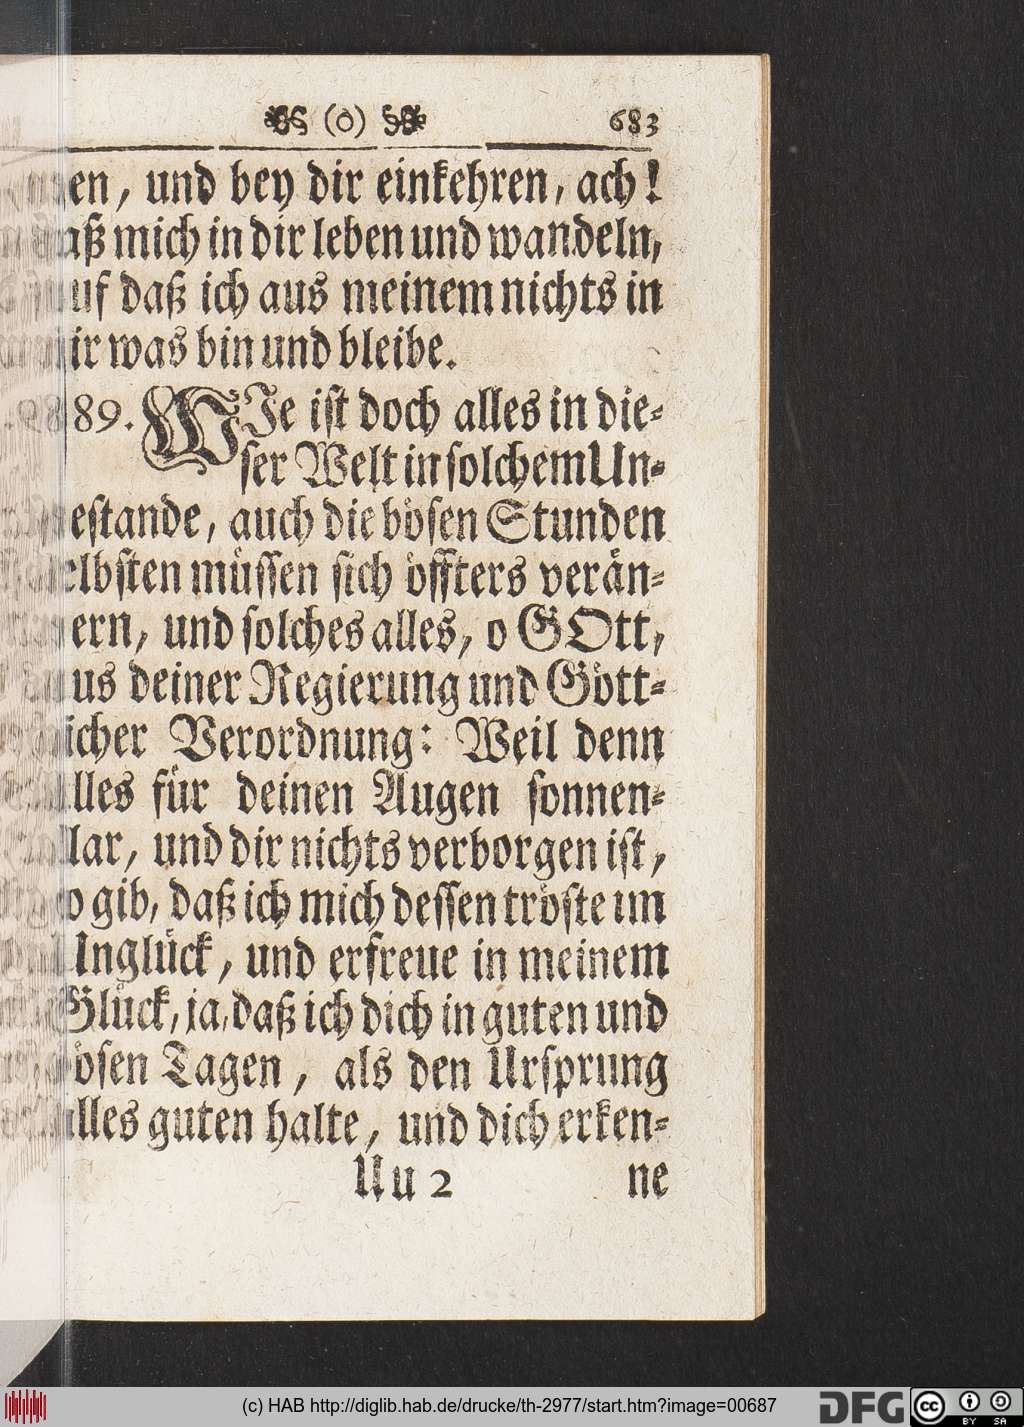 (o) 683
en, und bey dir einkehren, ach!
aß mich in dir leben und wandeln,
uf daß ich aus meinem nichts in
ir was bin und bleibe.
89. WIe ist doch alles in die-
ser Welt in solchem Un-
estande, auch die bösen Stunden
elbsten müssen sich öffters verän-
ern, und solches alles, o GOtt,
us deiner Regierung und Gött-
icher Verordnung: Weil denn
lles für deinen Augen sonnen-
lar, und dir nichts verborgen ist,
o gib, daß ich mich dessen tröste im
Unglück, und erfreue in meinem
Glück, ja, daß ich dich in guten und
ösen Tagen, als den Ursprung
alles guten halte, und dich erken-
Uu 2 ne
(c) HAB http://diglib.hab.de/drucke/th-2977/start.htm?image=00687
DFG
cc BY SA